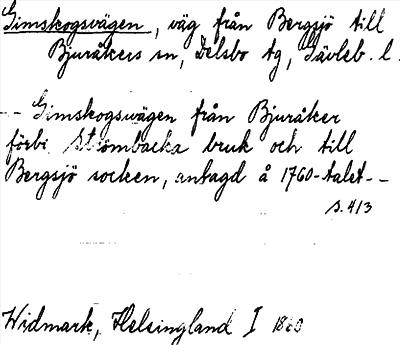 Gimskogsvägen, väg från Bergsjö till
Bjuråkers sn, Delsbo tg, Gävleb. l.
-- Gimskogsvägen från Bjuråker
förbi Strömbacka bruk och till
Bergsjö socken, antagd å 1760-talet--
s. 413
Widmark, Helsingland I 1860